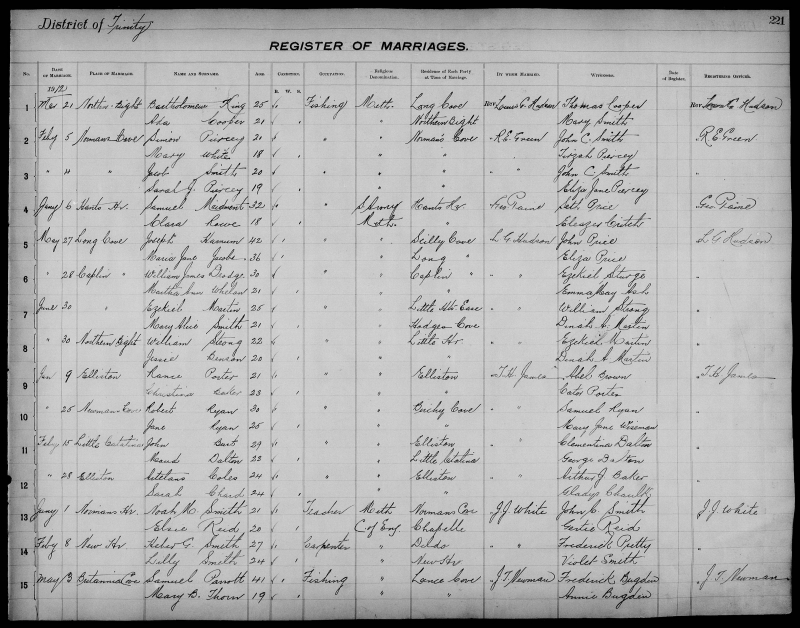 District of Trinity 221
REGISTER OF MARRIAGES.
No. DATE OF MARRIAGE. PLACE OF MARRIAGE. NAME AND SURNAME. AGE. CONDITION. OCCUPATION. Religious Denomination. Residence of Each Party at Time of Marriage. BY WHOM MARRIED. WITNESSES. Date of Register. REGISTERING OFFICER.
B. W. S.
1912
1 21 Northern Bight Bartholomew King 25 Fishing Meth. Long Cove Rev Hudson Thomas Cooper Rev Hudson
Ada Cooper 21 " Northern Bight Mary Smith
2 Feby 5 Normans Cove Simon Piercey 21 " " Normans Cove R E Green John C. Smith R E Green
Mary White 18 " " Tirzah Piercey
3 " 4 " Jacob Smith 20 " " " John C Smith "
Sarah J. Piercey 19 " " Eliza Jane Piercey
4 Jany 6 Hants Hr. Samuel 32 " S. Army Hants Hr Geo Paine Price Geo. Paine
Clara Lowe 18 Meth. " Eleazer Critch
5 May 27 Long Cove Joseph 42 " " Scilly Cove L G Hudson John Price L G Hudson
Maria Jane Jacobs 36 " Long " Eliza Price
6 " 28 Caplin " William James 30 " " Caplin " " " Ezekiel "
Martha Ann Whelan 21 " " Emma May
7 June 30 " Ezekiel Martin 25 " " Little Hts Ease " " William Strong "
Mary Alice Smith 21 " Hodges Cove Dinah A. Martin
8 " 30 Northern Bight William Strong 22 " " Little Hr. " " Ezekiel Martin "
Jessie Benson 20 " " Dinah A Martin
9 Jan 9 Elliston Porter 21 " " Elliston T. H. James Abel Brown T. H James
Christina 23 " " Cator Porter
10 " 25 Newmans Cove Robert Ryan 30 " " Birchy Cove " " Samuel Ryan "
Jane Ryan 25 " " Mary Jane Wiseman
11 Feby 15 Little Catalina John 29 " " Elliston " " Clementina Dalton "
Maud Dalton 22 " Little Catalina George Dalton
12 " 28 Elliston Coles 24 " " Elliston " " Arthur J. Baker "
Sarah Chard 24 " " Gladys
13 Jany 1 Normans Hr. Noah M. Smith 21 Teacher Meth Normans Cove J J White John C. Smith J J. White
Elsie Reid 20 C. of Eng. Chapelle Gertie Reid
14 Feby 8 New Hr. G Smith 27 Carpenter " Dildo " " Frederick Pretty "
Lilly Smith 24 " New Hr Violet Smith
15 May 3 Britannia Cove Samuel Perrott 41 Fishing " Lance Cove J T Newman Frederick Bugden J. T. Newman
Mary B. Thorn 19 " " Annie Bugden